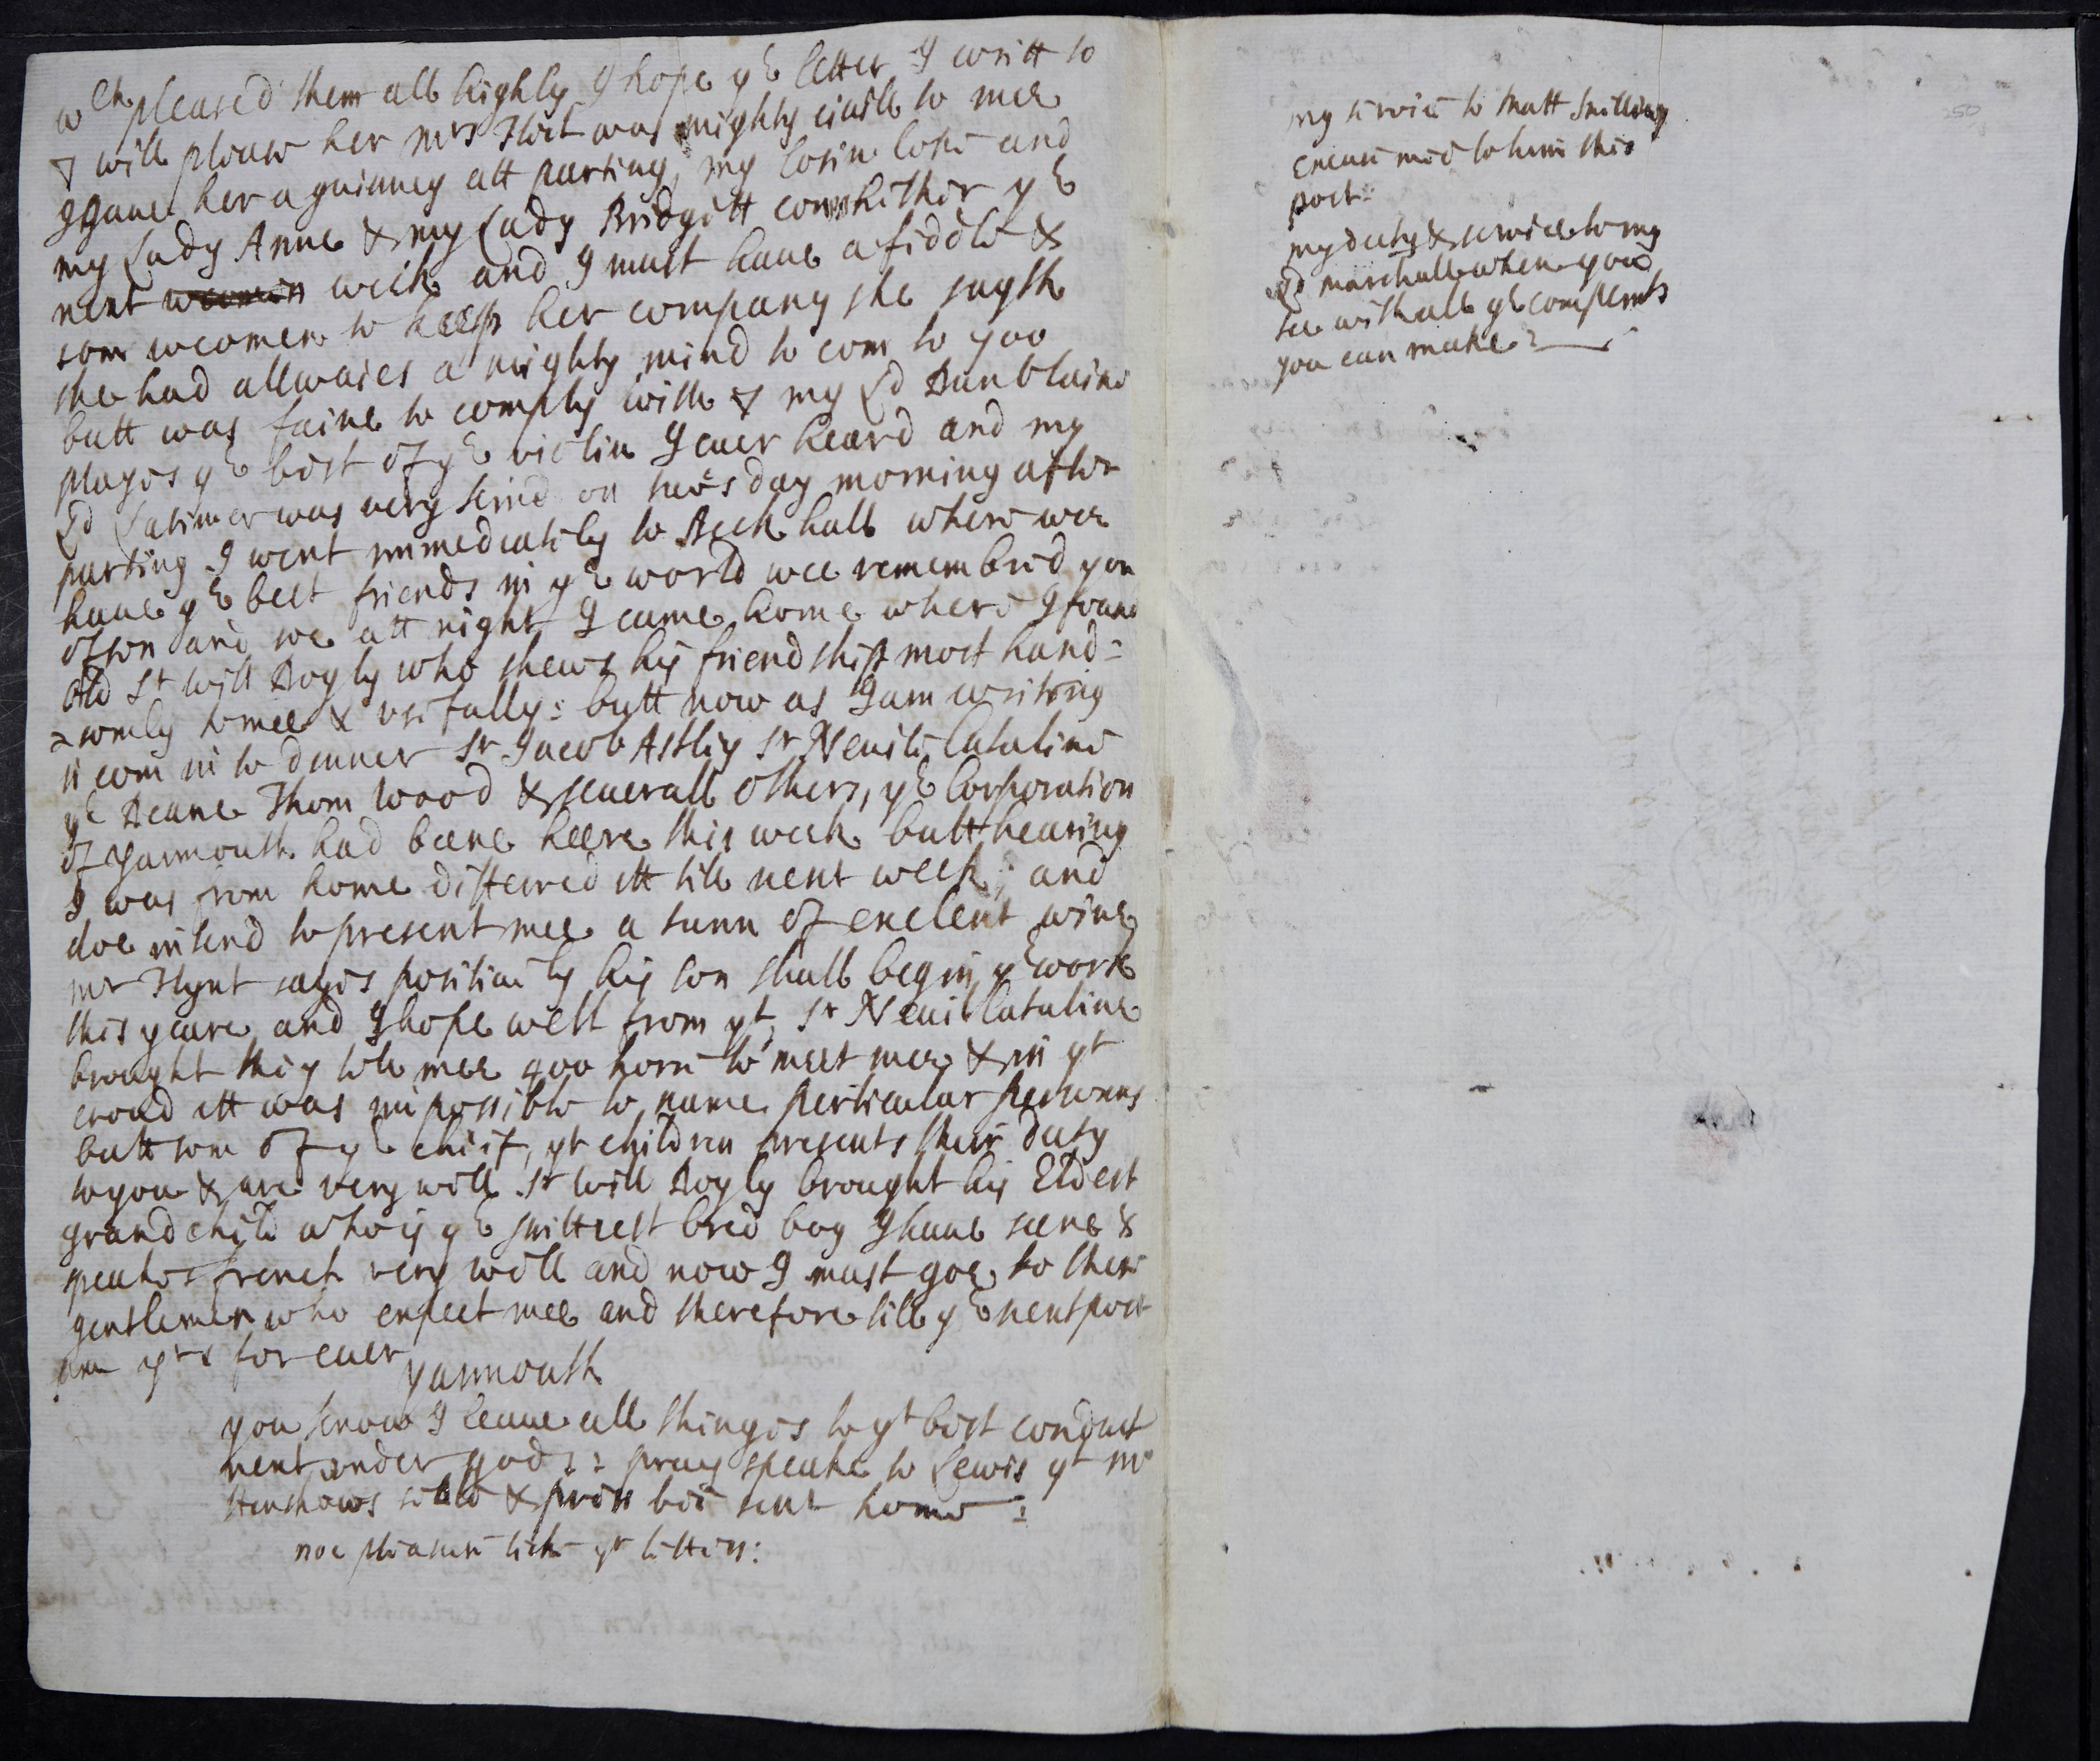 wch pleased them all highly I hope ye letter I writt to
will please her mrs Hoet was mighty ciuill to mee
I gaue her a guinney att parting, my Cosin Coke and
my Lady Anne & my Lady Bridgett com hither ye
next week and I must haue a fiddle &
som woomen to keep her company she sayth
she had allwaies a mighty mind to com to yoo
butt was faine to comply with my Ld Dunblaine
playes ye best of ye violin I euer heard and my
Ld Latimer was very kind on tuesday morning after
parting I went immediatly to Beck hall where wee
haue ye best friends in ye world wee remembred you
often and soe att night I came home where I found
old Sr Will Doyly who shews his friendship most hand=
=somly to mee & usefully: butt now as I am writing
is com in to dinner Sr Jacob Astley Sr Neuile Cataline
ye Deane Thom Wood & seuerall others, ye Corporation
of Yarmouth had beene heere this week butt hearing
I was from home differred itt till next week; and
doe intend to present mee a tunn of exelent wine
mr Flynt sayes positiuely his son shall begin ye work
this yeare, and I hope well from yt, Sr Neuil Cataline
brought they tell mee 400 horse to meet mee & in yt
croud itt was impossible to name perticular persons
butt som of ye chief, yr children presents their duty
to you & are very well Sr Will Doyly brought his Eldest
grandchild who is ye prittiest bred boy I haue seene &
speakes french very well and now I must goe to these
gentlemen who expect mee and therefore till ye next post
am yrs for euer
Yarmouth
you know I leaue all things to yr best conduct
next under god:: pray speake to Lewis yt mr
Henshaws table & press bee sent home:
noe pleasure like yr letters:
250
my seruice to Matt Snilling
excuse mee to him this
post:
my duty & seruice to my
Ld marshall when you
see with all ye complemts
you can make: